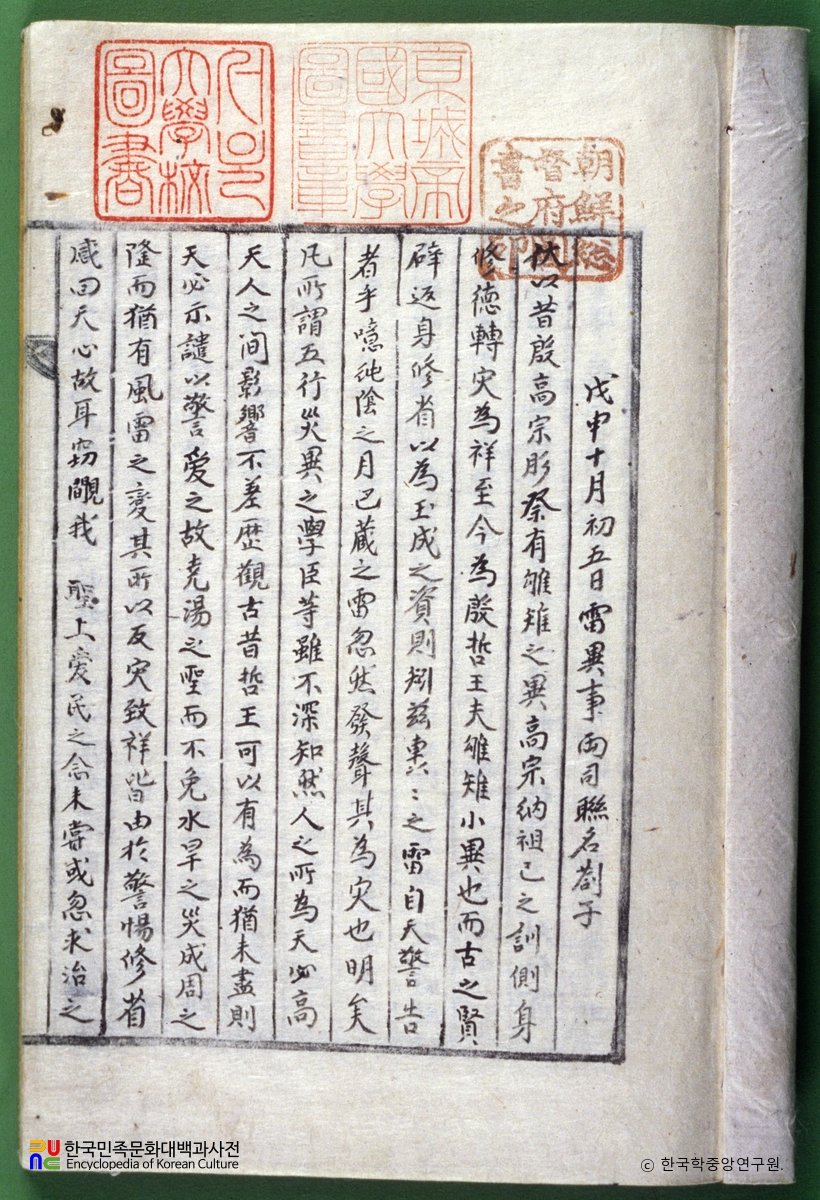 서울大學校圖書
京城帝國大學圖書章
朝鮮總督府圖書之印
戊申十月初五日雷異事兩司聯名劄子
伏以昔殷高宗肜祭有雊雉之異高宗納祖己之訓側身
修德轉灾為祥至今為殷哲王夫雊雉小異也而古之賢
辟返身修省以為玉成之資則矧玆轟々之雷自天警告
者乎噫純陰之月已蔵之雷忽然發聲其為灾也明矣
凡所謂五行災異之學臣等雖不深知然人之所為天必高
天人之间影響不差歷觀古昔哲王可以有為而猶未盡則
天必示譴以警愛之故堯湯之聖而不免水旱之災成周之
隆而猶有風雷之變其所以反灾致祥皆由於警惕修省
感回天心故耳窃覵我 聖上爱民之念未嘗或忽求治之
한국민족문화대백과사전
Encyclopedia of Korean Culture
© 한국학중앙연구원.